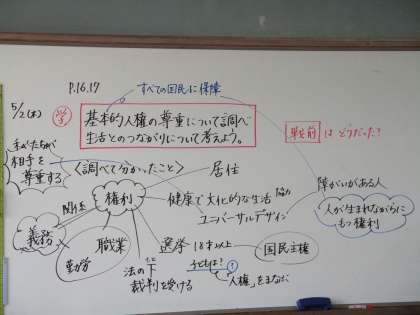 P.16.17
すべての国民に保障
5/2(木)
基本的人権の尊重について調べ
生活とのつながりについて考えよう。
戦前はどうだった?
相手を
尊重する
〈調べて分かったこと〉
居住
権利
健康で文化的な生活
協力
障がいがある人
ユニバーサルデザイン
関係
人が生まれながらに
もつ権利
義務
職業
選挙
18才以上
国民主権
勤労
法の下
もと
子どもは?
裁判を受ける
「人権」をまなぶ